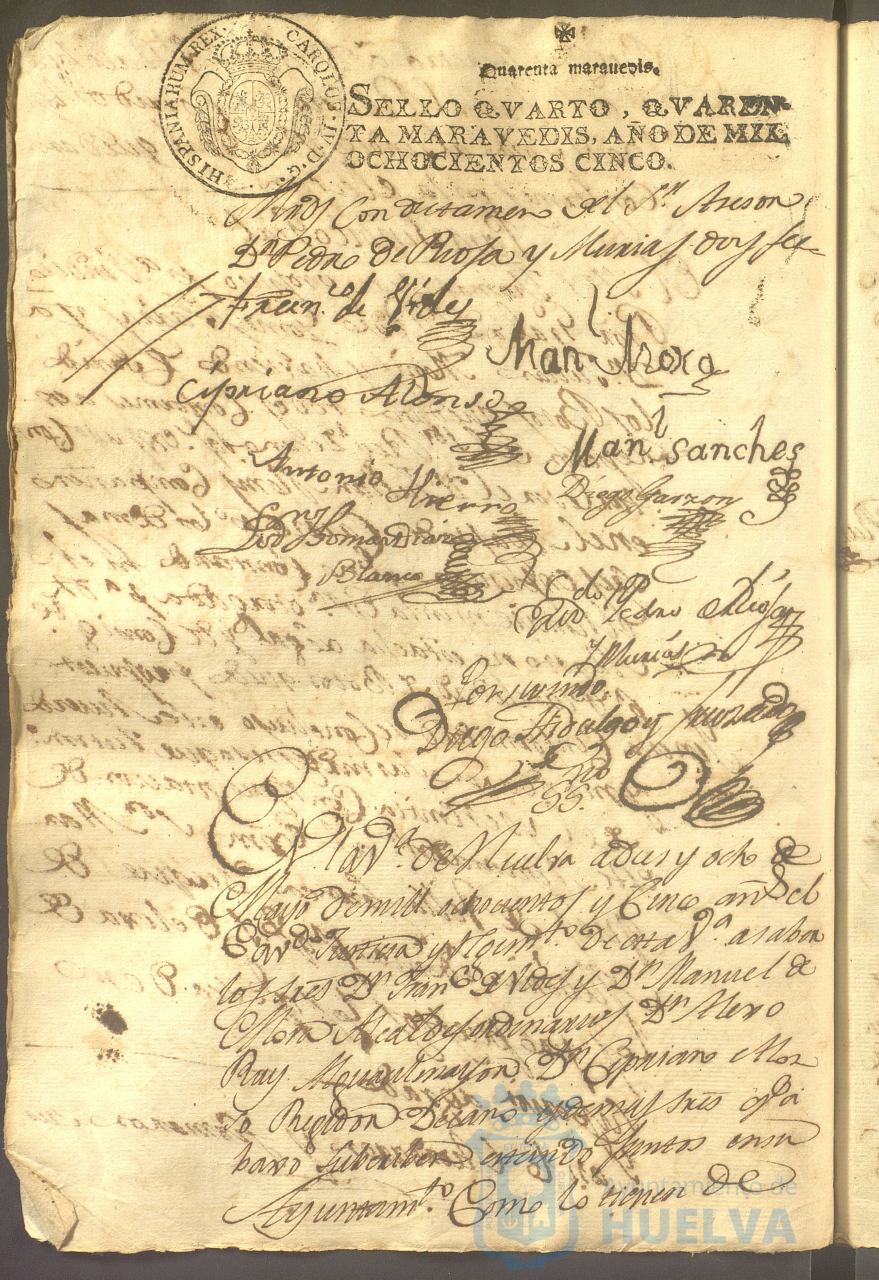 HISPANIARUM REX. CAROLUS IV D. G.
Quarenta maravedis.
SELLO QVARTO, QVAREN-
TA MARAVEDIS, AÑO DE MIL
OCHOCIENTOS CINCO.
Con dictamen del Sr. Asesor
Dn. Pedro de Riosa y Murias doy fee
Fran.co de
Man.l Mora
Cipriano Alonso
Man.l sanches
Antonio
Diego Garzon
Blanco
Ldo Pedro de Riosa
y Murias
Por su mdo.
Diego Hidalgo y
SS.no
En la V.a de Huelva a dies y ocho de
Mayo de mill ochocientos y Cinco años el
Justicia y Regim.to de esta V.a a saber
los sres Dn. Fran.co de y Dn. Manuel de
Mora Alcaldes ordinarios Dn.
Ruy Alguasil mayor Dn. Cipriano Alon
so Regidor Decano y demas sres q.e a
baxo subscriben estando juntos en su
Ayuntam.to Como lo tienen de
Ayuntamiento de
HUELVA